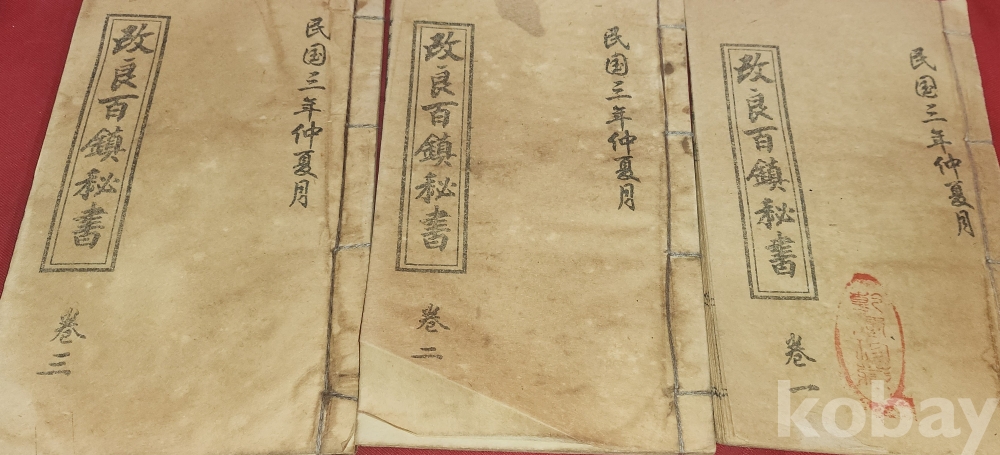 民国三年仲夏月
改良百鎮秘書
卷一
民国三年仲夏月
改良百鎮秘書
卷二
民国三年仲夏月
改良百鎮秘書
卷三
kobay